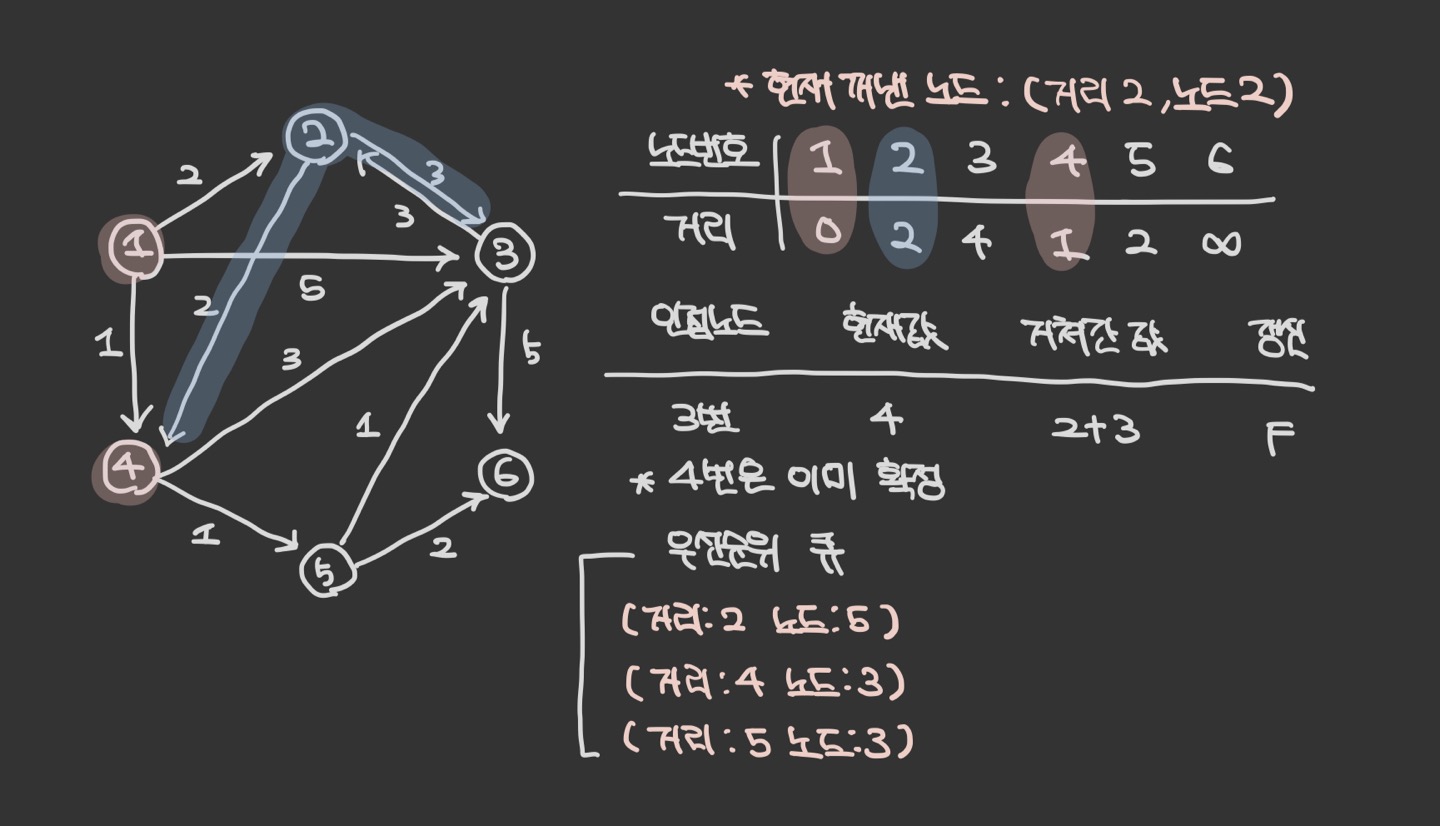 * 현재 꺼낸 노드 : (거리 2, 노드 2)
노드번호 1 2 3 4 5 6
거리 0 2 4 1 2 ∞
인접노드 현재값 거쳐간 값 갱신
3번 4 2+3 F
* 4번은 이미 확정
우선순위 큐
(거리:2 노드:5)
(거리:4 노드:3)
(거리:5 노드:3)
2
2
3
3
1
3
5
2
1
3
5
4
1
6
1
2
5